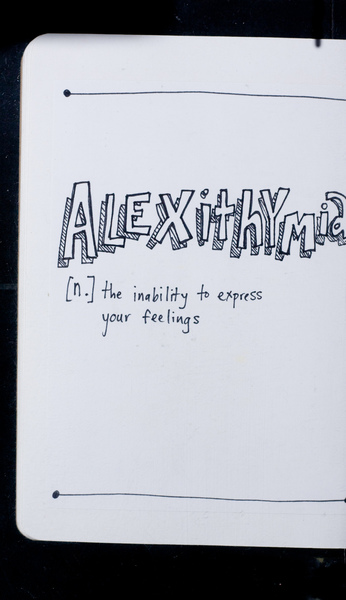 ALLEXithYMia
[n.] the inability to express
your feelings